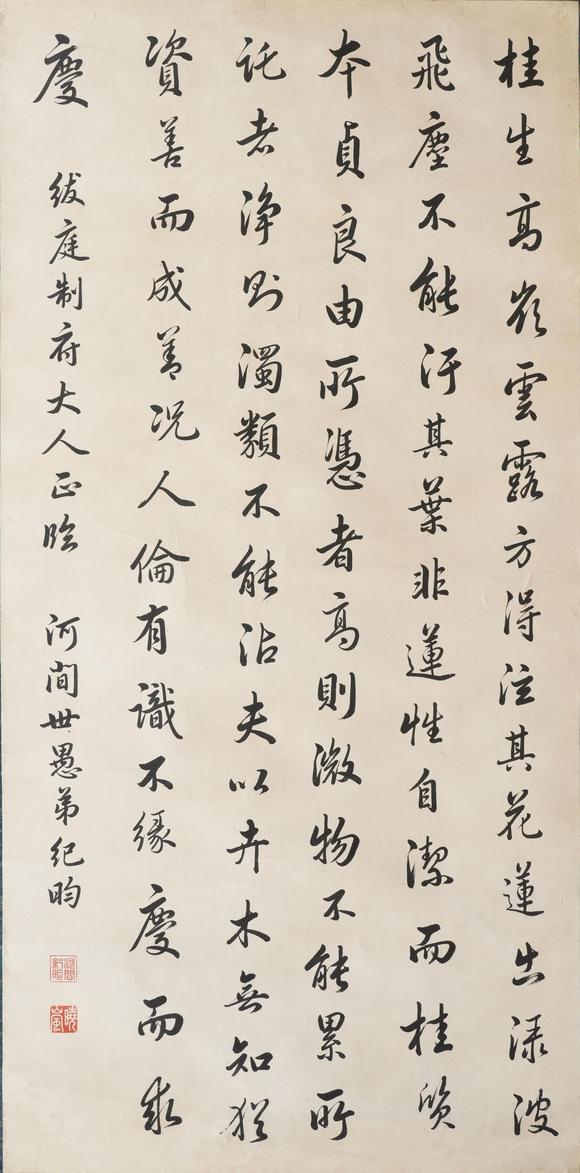 桂生高嶺雲露方得泫其花蓮出淥波
飛塵不能汙其葉非蓮性自潔而桂質
本貞良由所憑者高則微物不能累所
託者淨則濁類不能沾夫以卉木無知猶
資善而成善況人倫有識不緣慶而求
慶 紱庭制府大人正臨 河間世愚弟紀昀
河間紀昀
曉嵐